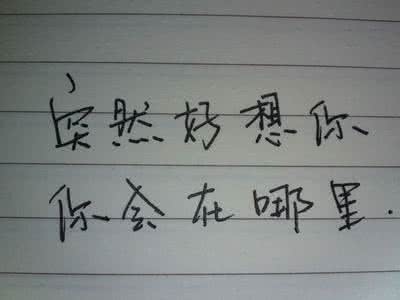 突然好想你
你会在哪里.